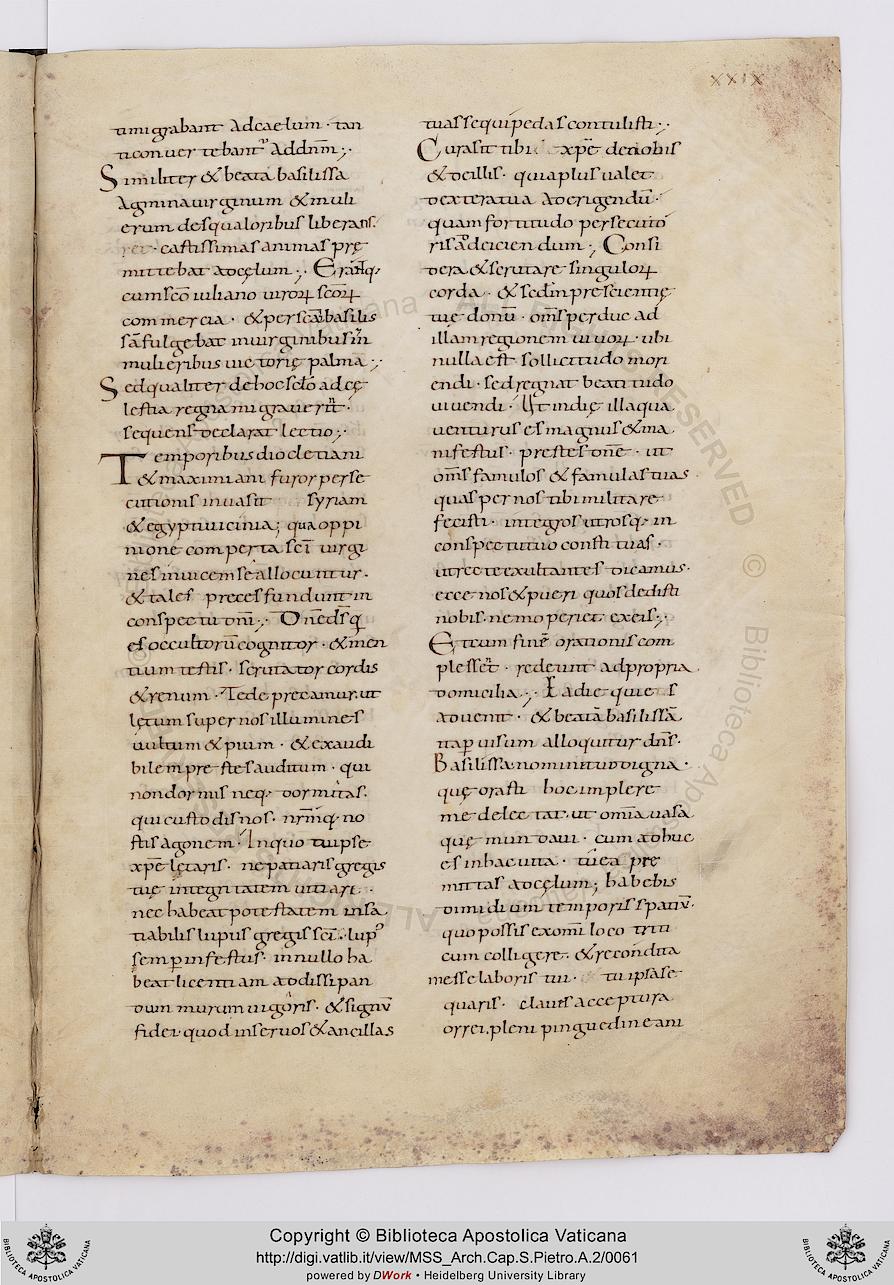 xxix
timigrabant adcaelum · tan
ticonuertebant᷒ addn̄m ;·
Similiter & beata basilissa
agmina uirginum & muli
erum desqualoribus liberans.
castissimas animas prę
mittebat adcęlum ;· Erantq·
cumsc̄o iuliano uiroꝝ sc̄oꝝ
commercia · & persc̄am basilis
sā fulgebat inuirginibus &in
mulieribus uictorię palma ;·
Sedqualiter dehoc sc̄lo adcę
lestia regna migrauer̄t ·
sequens declarat lectio ;·
Temporibus diocletiani
& maximiani furor perse
cutionis inuasit syriam
& egyptiuicinia; qua oppi
nione comperta sc̄i uirgi
nes inuicem se allocuntur ·
& tales preces fundunt in
conspectu dn̄i ;· Dn̄e ds̄ q
es occultorū cognitor · & men
tium testis · scrutator cordis
& renum · Te deprecamur ut
lętum super nos illumines
uultum & pium · & exaudi
bilem prestes auditum · qui
non dormis neq· dormitas.
qui custodis nos · nr̄mq· no
stis agonem · Inquo tu ipse
xp̄e lętaris · nepatiaris gregis
tuę integritatem uitiari ·
nec habeat potestatem insa
tiabilis lupus gregis sc̄i · lup᷒
semp̄ infestus · innullo ha
beat licentiam addissipan
dum murum uigoris · & signū
fidei quod inseruos & ancillas
tuas sequipedas contulisti ;·
Curasit tibi xp̄e denobis
& decillis · quia plus ualet
dextera tua ad erigendū ·
quam fortitudo persecuto
ris addeiciendum ;· Consi
dera & scrutare singuloꝝ
corda · & sedin prescientię
tuę donū · om̄s perduc ad
illam regionem uiuoꝝ · ubi
nulla est sollicitudo mori
endi · sed regnat beatitudo
uiuendi · Ut indię illa qua
uenturus es magnus & ma
nifestus · prestes dn̄e · ut
om̄s famulos & famulas tuas
quas per nos tibi militare
fecisti · integros utrosq· in
conspectu tuo constituas ·
ut recte exultantes dicamus ·
ecce nos & pueri quos dedisti
nobis · nemo periet ex eis ;·
Et cum finē orationis com
plesset · redeunt ad propria
domicilia ;· Et adie quietis
aduenit · & beatā basilissā
ita p̄ uisum alloquitur dn̄s ·
Basilissa nominitu digna ·
quę orasti hoc implere
me delectat · ut omīa uasa
quę mundaui · cum adhuc
es in hac uita · tu ea pre
mittas adcęlum ; habebis
dimidium temporis spatiū ·
quo possis ex omī loco triti
cum colligere · & recondita
messe laboris tui · tu ipsa se
quaris · claues acceptura
orrei · pleni pinguedine ani
Copyright © Biblioteca Apostolica Vaticana
http://digi.vatlib.it/view/MSS_Arch.Cap.S.Pietro.A.2/0061
powered by DWork • Heidelberg University Library